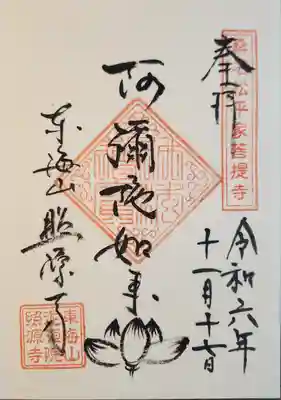 松平家菩提寺
奉拝
令和六年
十一月
阿彌陀如来
東海山 照源寺
東海山
照源寺